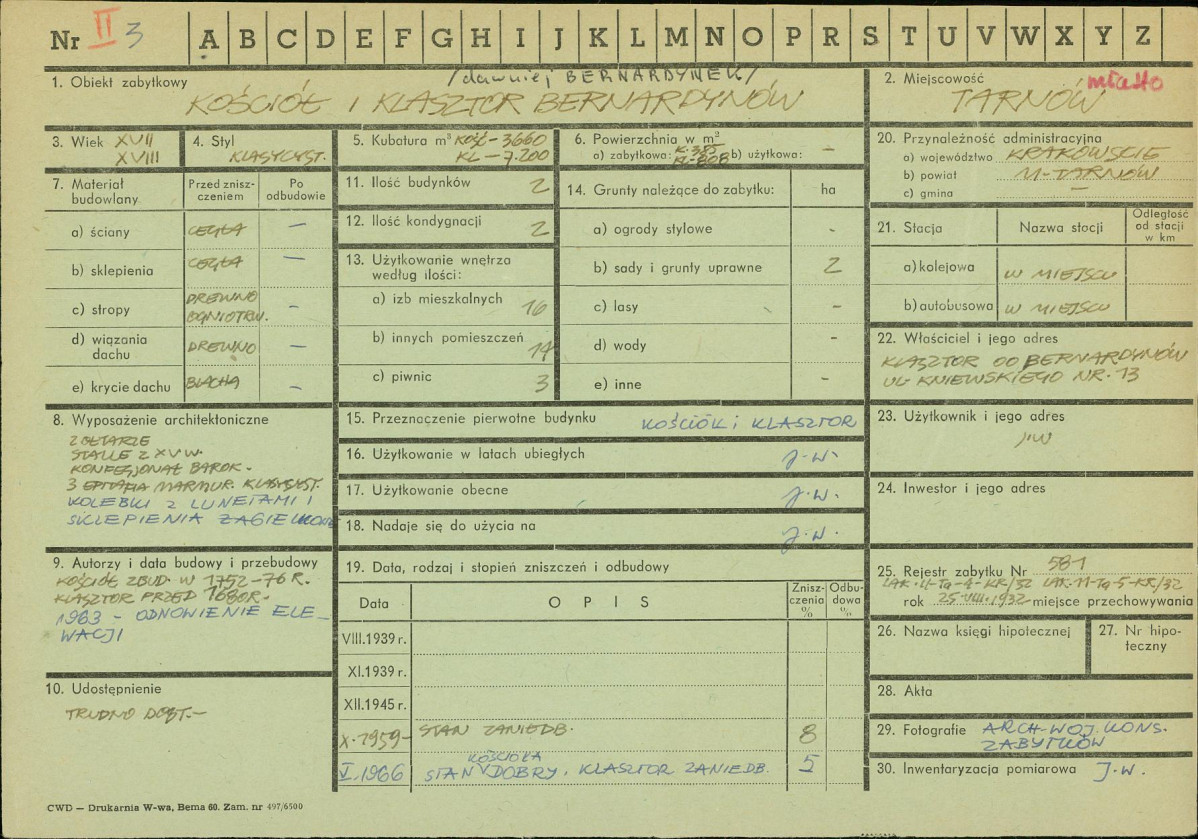 Nr II 3 A B C D E F G H I J K L M N O P R S T U V W X Y Z
1. Obiekt zabytkowy /dawniej BERNARDYNEK/
KOŚCIÓŁ I KLASZTOR BERNARDYNÓW
2. Miejscowość miasto
TARNÓW
3. Wiek XVII
XVIII
4. Styl
KLASYCYST.
5. Kubatura m³ KOŚĆ - 3660
KL - 7.200
6. Powierzchnia w m²
a) zabytkowa: K. 385 b) użytkowa: -
KL-808
20. Przynależność administracyjna
a) województwo KRAKOWSKIE
b) powiat M-TARNÓW
c) gmina -
7. Materiał budowlany
Przed zniszczeniem
Po odbudowie
a) ściany CEGŁA -
b) sklepienia CEGŁA -
c) stropy DREWNO
OGNIOTRW. -
d) wiązania
dachu DREWNO -
e) krycie dachu BLACHA -
11. Ilość budynków 2
12. Ilość kondygnacji 2
13. Użytkowanie wnętrza
według ilości:
a) izb mieszkalnych 16
b) innych pomieszczeń 14
c) piwnic 3
14. Grunty należące do zabytku: ha
a) ogrody stylowe -
b) sady i grunty uprawne 2
c) lasy -
d) wody -
e) inne -
21. Stacja Nazwa stacji Odległość
od stacji
w km
a) kolejowa W MIEJSCU
b) autobusowa W MIEJSCU
22. Właściciel i jego adres
KLASZTOR OO BERNARDYNÓW
UL KNIEWSKIEGO NR. 13
8. Wyposażenie architektoniczne
STALLE Z XV W.
KONFESJONAŁ BAROK.
3 EPITAFIA MARMUR. KLASYCYST.
KOLEBKI Z LUNETAMI I
SKLEPIENIA ŻAGIELKOWE
15. Przeznaczenie pierwotne budynku KOŚCIÓŁ i KLASZTOR
16. Użytkowanie w latach ubiegłych j.w.
17. Użytkowanie obecne j.w.
18. Nadaje się do użycia na j.w.
23. Użytkownik i jego adres
j.w
24. Inwestor i jego adres
9. Autorzy i data budowy i przebudowy
KOŚCIÓŁ ZBUD. W 1752-76 R.
KLASZTOR PRZED 1680R.
1963 - ODNOWIENIE ELE-
WACJI
10. Udostępnienie
TRUDNO DOST.-
19. Data, rodzaj i stopień zniszczeń i odbudowy
Data OPIS Znisz-
czenia
% Odbu-
dowa
%
VIII.1939 r.
XI.1939 r.
XII.1945 r.
X.1959- STAN ZANIEDB. 8
KOŚCIOŁA
V.1966 STAN DOBRY, KLASZTOR ZANIEDB. 5
25. Rejestr zabytku Nr 581
LAK.II-Tą-4-KR/32 LAK-11-Tą-5-KR/32
rok 25.VIII.1932 miejsce przechowywania
26. Nazwa księgi hipotecznej
27. Nr hipo-
teczny
28. Akta
29. Fotografie ARCH-WOJ. KONS.
ZABYTKÓW
30. Inwentaryzacja pomiarowa J.W.
CWD — Drukarnia W-wa, Bema 60. Zam. nr 497/6500